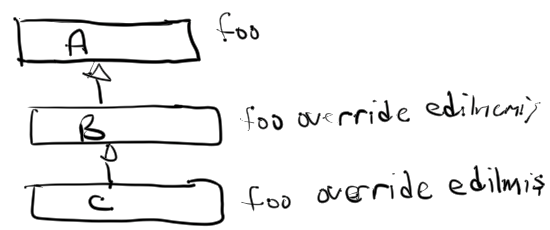 A foo
B foo override edilmemiş
C foo override edilmiş